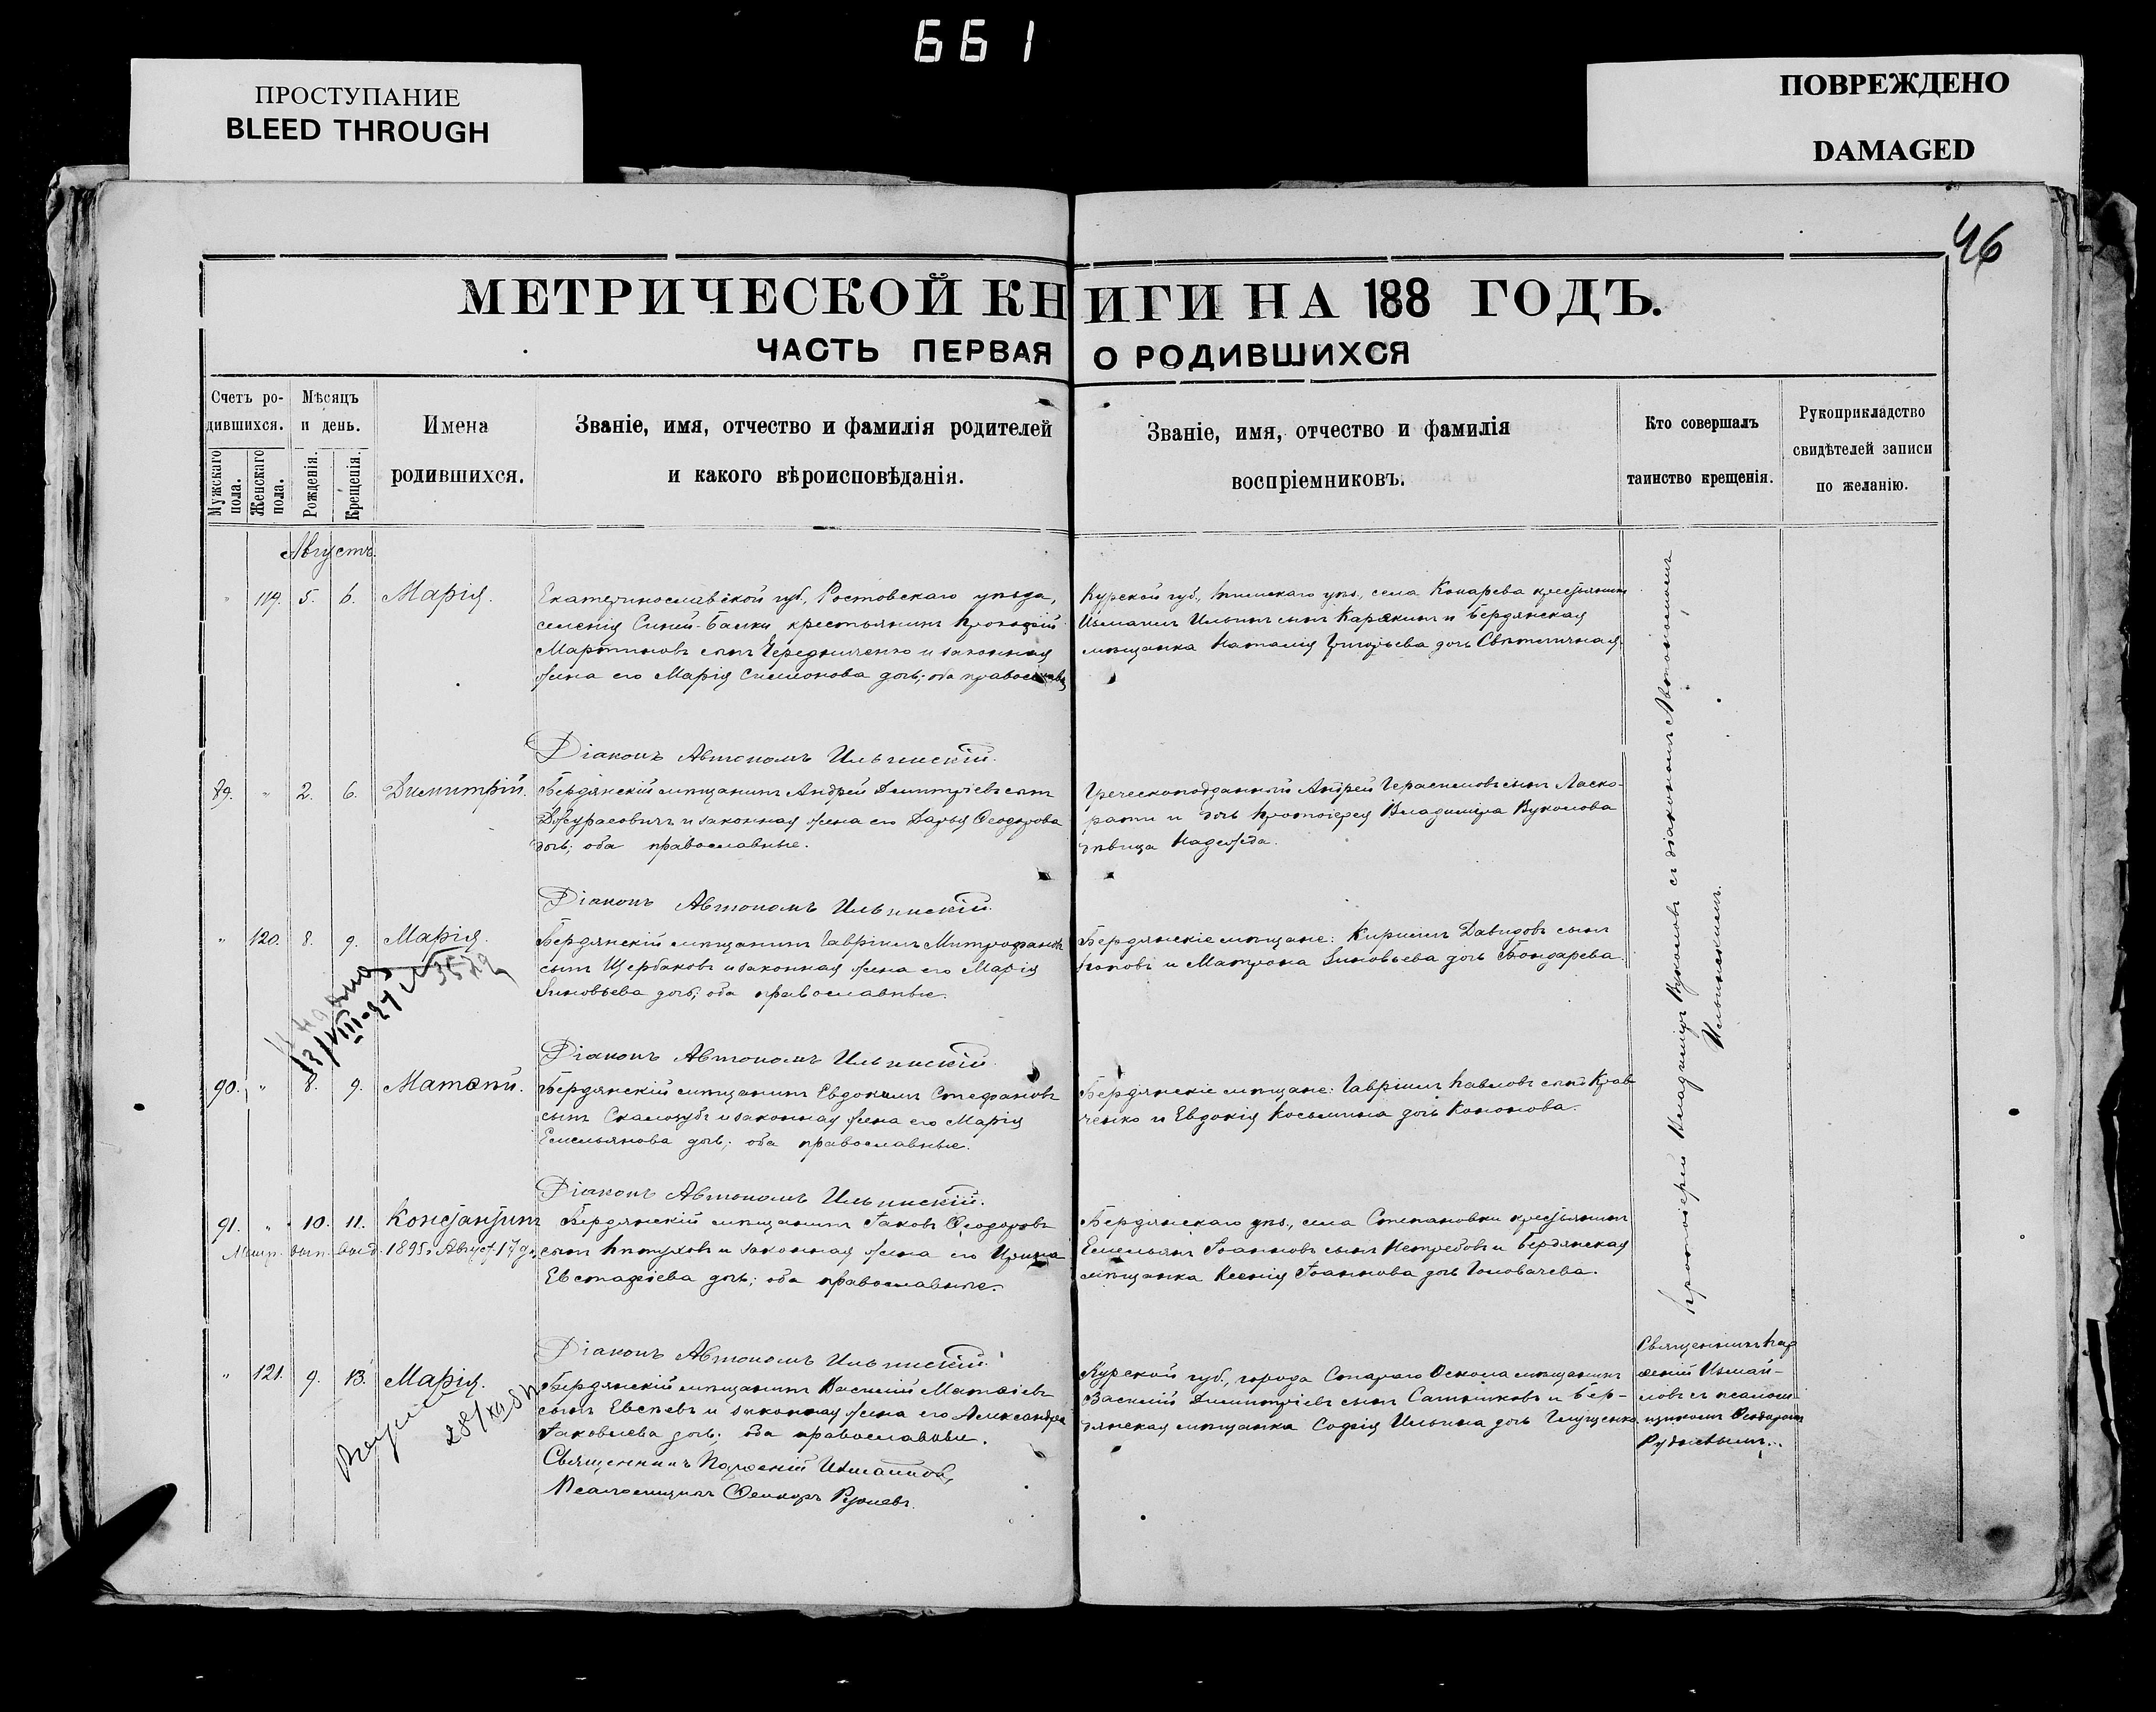 661
ПРОСТУПАНИЕ
BLEED THROUGH
ПОВРЕЖДЕНО
DAMAGED
46
МЕТРИЧЕСКОЙ КНИГИ НА 188 ГОДЪ.
ЧАСТЬ ПЕРВАЯ О РОДИВШИХСЯ
Счетъ ро-
дившихся.
Мужскаго пола.
Женскаго пола.
Мѣсяцъ
и день.
Рожденія.
Крещенія.
Имена
родившихся.
Званіе, имя, отчество и фамилія родителей
и какого вѣроисповѣданія.
Званіе, имя, отчество и фамилія
воспріемниковъ.
Кто совершалъ
таинство крещенія.
Рукоприкладство
свидѣтелей записи
по желанію.
Августъ.
" 119. 5. 6. Марія.
Екатеринославской губ., Ростовскаго уѣзда,
селенія Синей-Балки крестьянинъ
Мартиновъ сынъ Чередниченко и законная
жена его Марія Симонова дочь; оба православ
Курской губ., уѣз., села Конарева крестьянинъ
Измаилъ Ильинъ сынъ Карякинъ и Бердянская
мѣщанка Наталія Григорьева дочь Свѣтличная.
Діаконъ Автономъ Ильинскій.
89. " 2. 6. Димитрій.
Бердянскій мѣщанинъ Андрей Димитріевъ сынъ
Джурасовичъ и законная жена его Дарья Ѳеодорова
дочь; оба православные.
Греческоподданный Андрей Герасимовъ сынъ Ласко-
рати и дочь Протоіерея Владиміра Вуколова
дѣвица Надежда.
Діаконъ Автономъ Ильинскій.
" 120. 8. 9. Марія.
Бердянскій мѣщанинъ Гавріилъ Митрофановъ
сынъ Щербаковъ и законная жена его Марія
Зиновьева дочь; оба православные.
Бердянскіе мѣщане: Кириллъ Давидовъ сынъ
Поповъ и Матрона Зиновьева дочь Бондарева.
13/VIII-24 № 3579
Діаконъ Автономъ Ильинскій.
90. " 8. 9. Матѳей.
Бердянскій мѣщанинъ Евдокимъ Стефановъ
сынъ Скалозубъ и законная жена его Марія
Емельянова дочь; оба православные.
Бердянскіе мѣщане: Гавріилъ Павловъ сынъ Крав-
ченко и Евдокія Косьмина дочь Кононова.
Діаконъ Автономъ Ильинскій.
91. " 10. 11. Константинъ
Метр. вып. выд. 1895 г. Август. 17 дн.
Бердянскій мѣщанинъ Іаковъ Ѳеодоровъ
сынъ Пѣтуховъ и законная жена его Ирина
Евстафіева дочь; оба православные.
Бердянскаго уѣз., села Степановки крестьянинъ
Емельянъ Іоанновъ сынъ Нетребовъ и Бердянская
мѣщанка Ксенія Іоаннова дочь Головачева.
Протоіерей Владиміръ Вуколовъ съ діакономъ Автономомъ
Ильинскимъ.
Діаконъ Автономъ Ильинскій.
" 121. 9. 13. Марія.
Бердянскій мѣщанинъ Василій Матѳіевъ
сынъ Евсѣевъ и законная жена его Александра
Іаковлева дочь; оба православные.
Священникъ Парѳеній Измаиловъ,
Псаломщикъ Ѳеодоръ Рудневъ.
Курской губ., города Стараго Оскола мѣщанинъ
Василій Димитріевъ сынъ Сатинковъ и Бер-
дянская мѣщанка Софія Ильина дочь Глущенко.
Священникъ Пар-
ѳеній Измаи-
ловъ съ псалом-
щикомъ Ѳеодоромъ
Рудневымъ.
28/XII